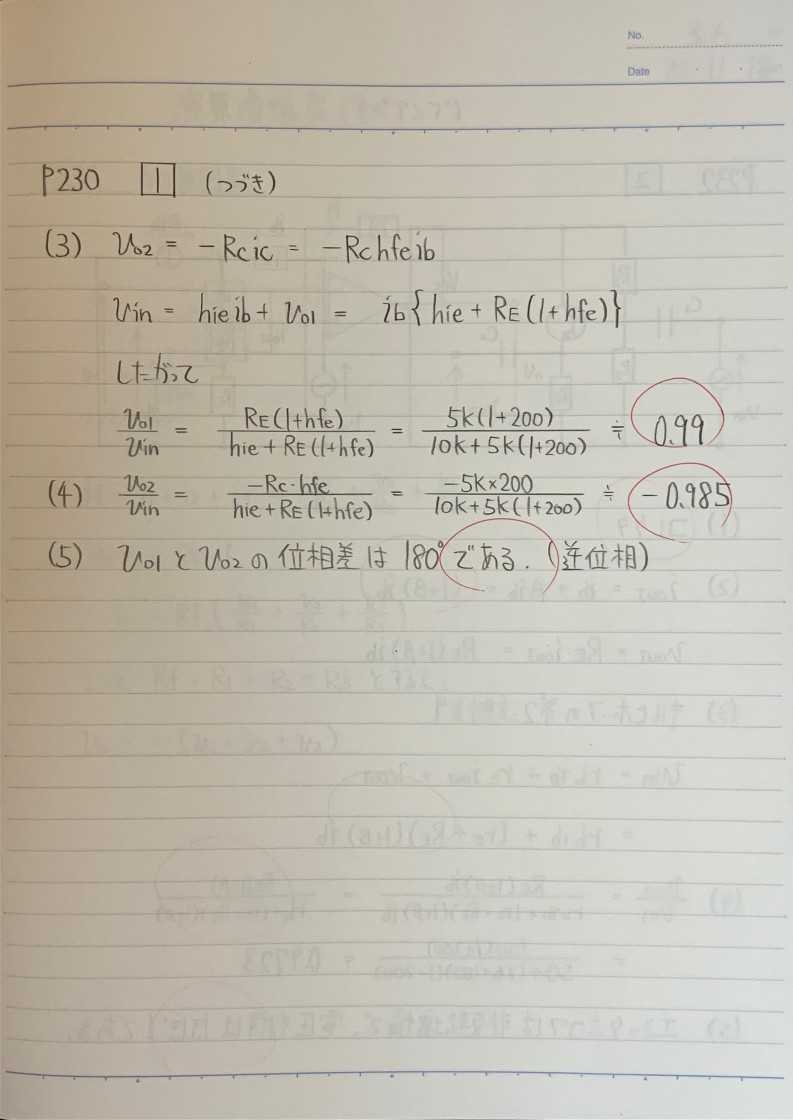 No.
Date
P230 1 (つづき)
(3) Vo2 = -Rcic = -Rchfeib
Vin = hieib + Vo1 = ib{hie + RE(1+hfe)}
したがって
Vo1/Vin = RE(1+hfe)/hie+RE(1+hfe) = 5k(1+200)/10k+5k(1+200) ≒ 0.99
(4) Vo2/Vin = -Rc・hfe/hie+RE(1+hfe) = -5k×200/10k+5k(1+200) ≒ -0.985
(5) Vo1とVo2の位相差は180°である.(逆位相)